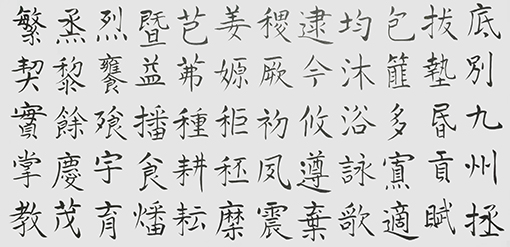 底別九州拯
拔墊昬貢賦
包篚多寡適
均沐浴詠歌
逮今攸遵棄
稷厥初夙震
姜嫄秬秠穈
芑茀種耕耘
暨益播食燔
烈饔飧字育
烝黎餘慶茂
繁契實掌教